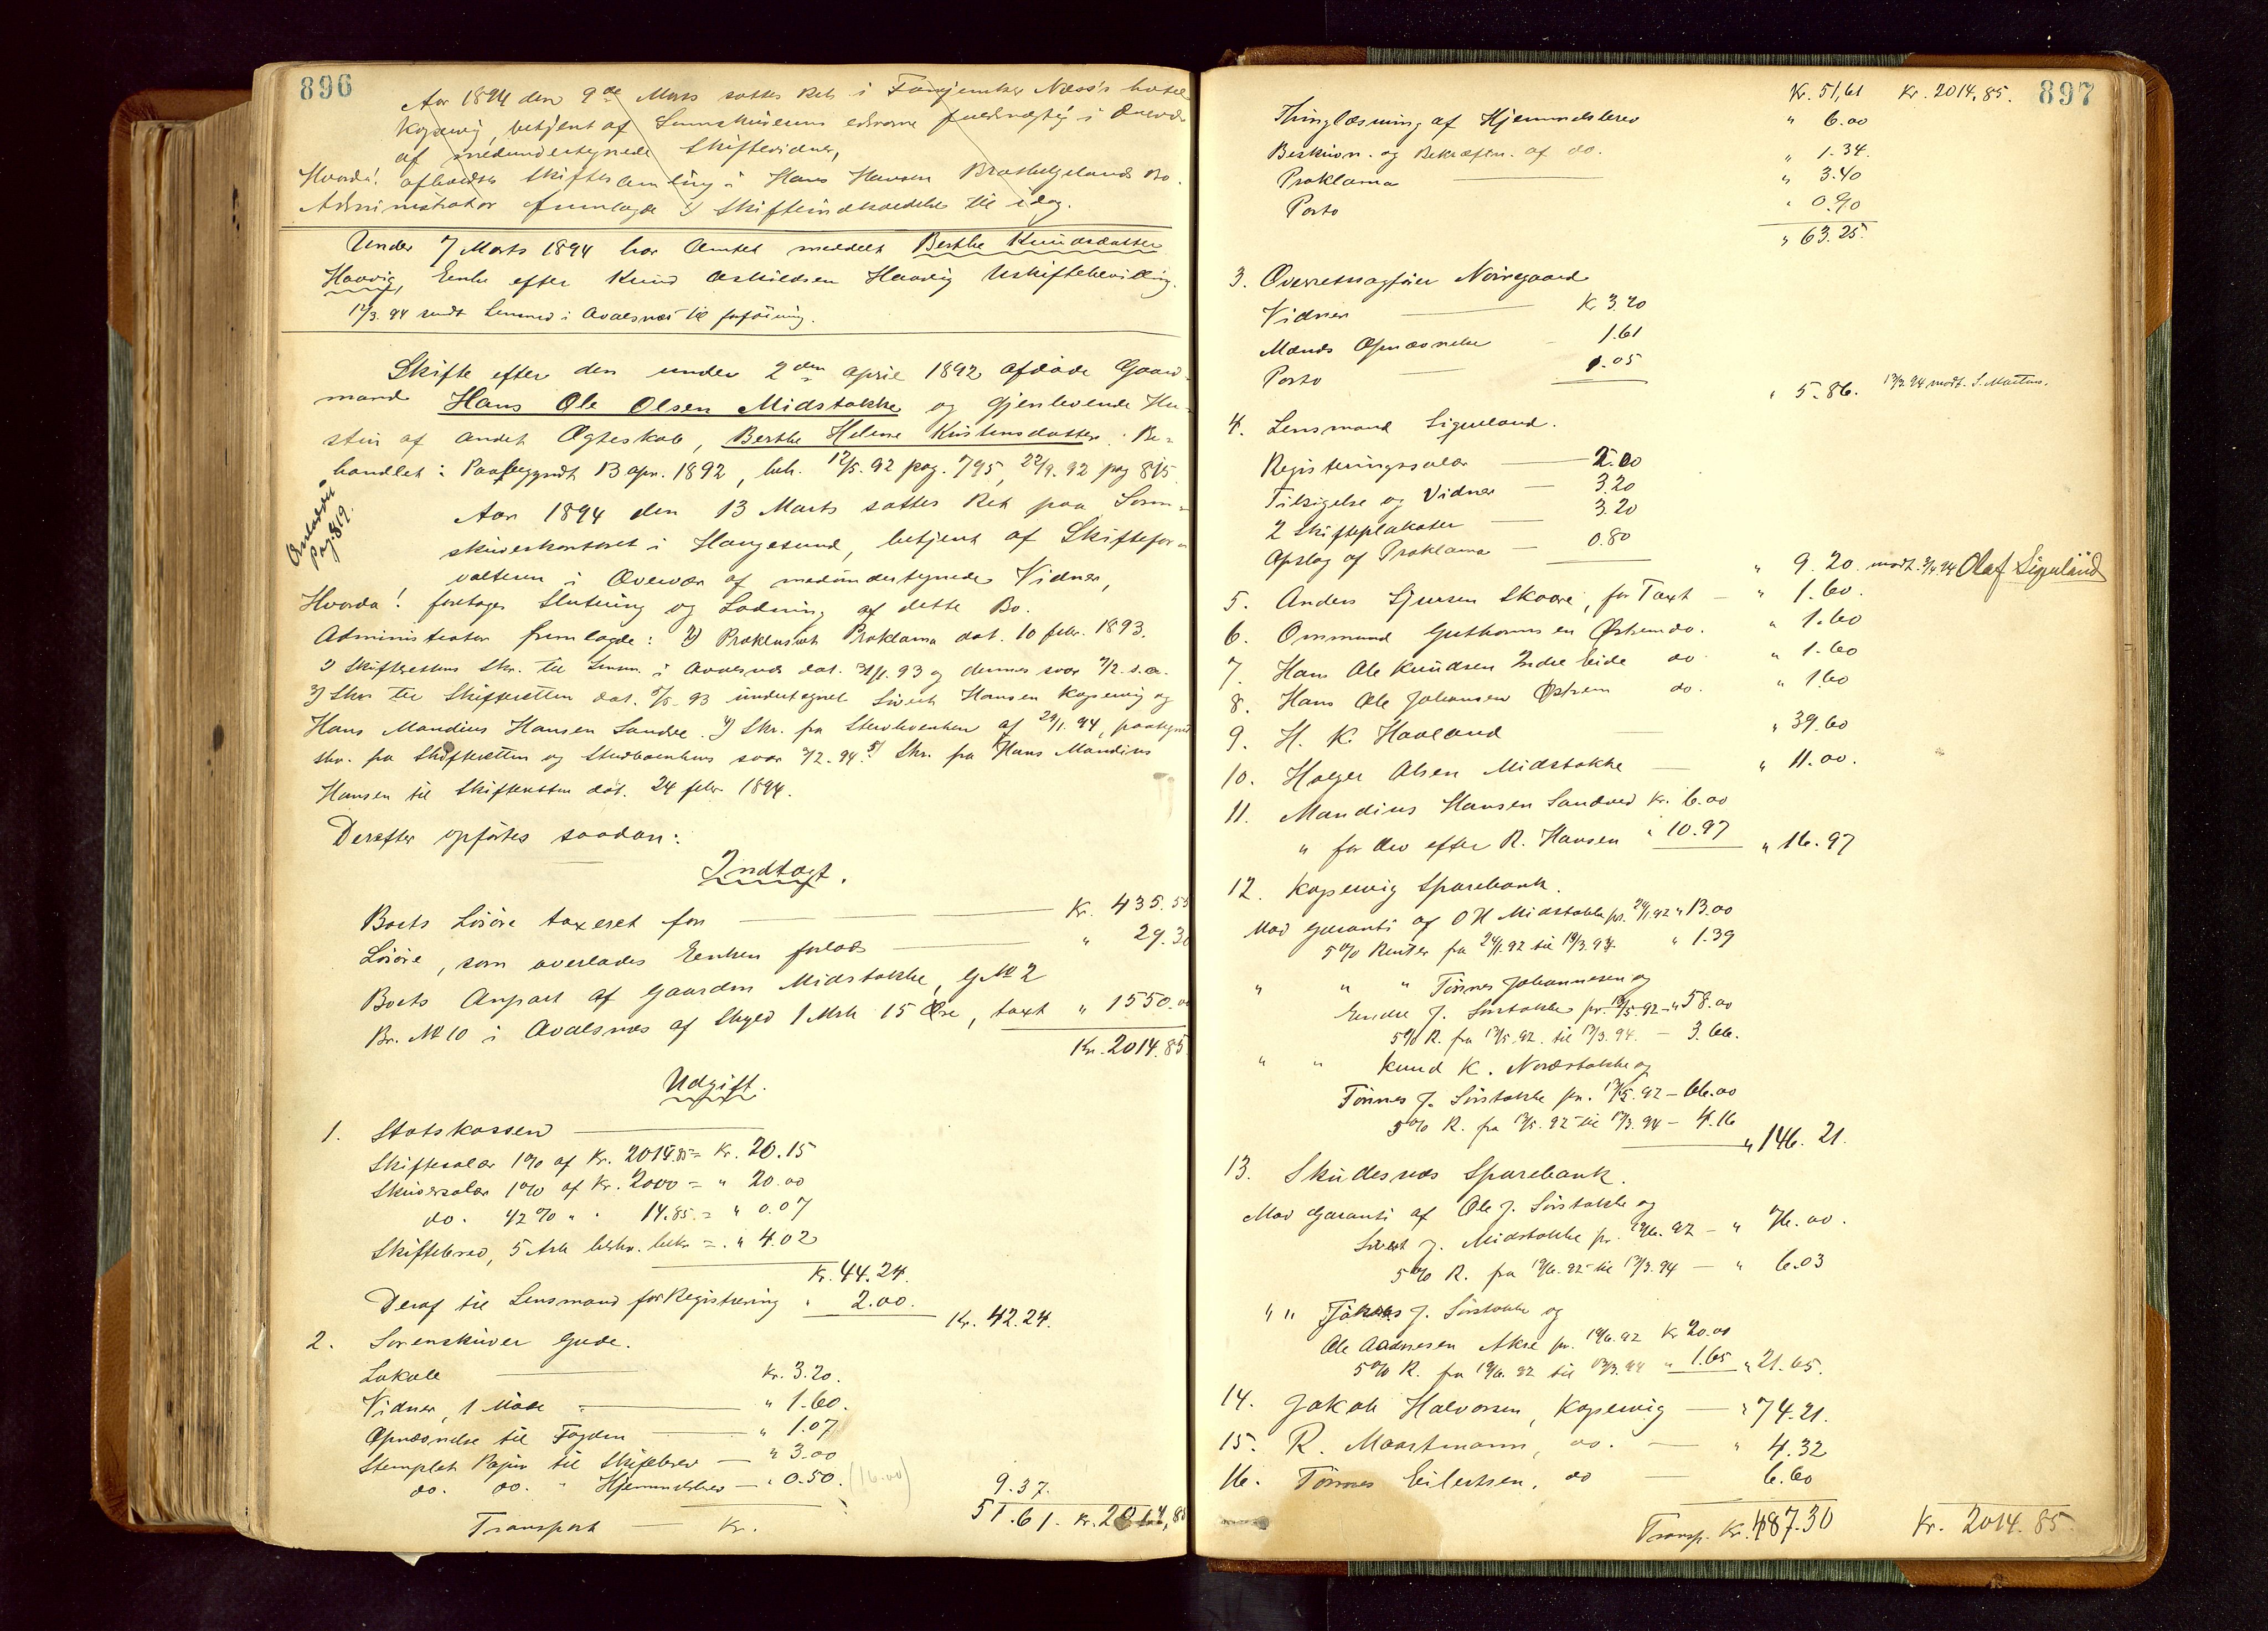 896
Aar 1894 den 9de Marts sattes Ret i Næss's hotel
Kopervig, betjent af Sorenskriverens edsvorne fuldmægtig i Overvær
af medundertegnede Skiftevidner,
Hvorda! afholdtes Skiftesamling i Hans Hansen Bo.
Administrator fremlagde 1) Skifteindkaldelse til idag.
Under 7 Marts 1894 har Amtet meddelt Berthe Knudsdatter
Haavig, Enke efter Knud Askildsen Haavig Uskiftebevilling.
12/3. 94 sendt Lensmd i Avalsnæs til forføining.
Skifte efter den under 2den april 1892 afdøde Gaard-
mand Hans Ole Olsen Midstokke og gjenlevende Hu-
stru af andet Ægteskab, Berthe Helene Kristensdatter. Be-
handlet: Paabegyndt 13 apr. 1892, beh. 12/5. 92 pag. 795, 22/9. 92 pag 815
pag. 819.
Aar 1894 den 13 Marts sattes Ret paa Soren-
skriverkontoret i Haugesund, betjent af Skiftefor-
valteren i Overvær af medundertegnede Vidner,
Hvorda! foretages Slutning og Lodning af dette Bo.
Administrator fremlagde: 1) Præklusivt Proklama dat. 10 febr. 1893.
2) Skifterettens Skr. til Lensm. i Avalsnæs dat. 31/1. 93 og dennes svar 2/2. s.a.
3) Skr til Skifteretten dat. 5/5 93 undertegnet Sivert Hansen Kopervig og
Hans Mandius Hansen Sandve. 4) Skr. fra Sterbvenken af 29/1. 94, paategnet
skr. fra Skifteretten og Sterboenkens svar 3/2. 94. 5) Skr. fra Hans Mandius
Hansen til Skifteretten dat. 24 febr 1894.
Derefter opførtes saadan:
Indtægt.
Boets Løsøre taxeret for Kr. 435.55
Løsøre, som overlades Enken forlods " 29.30
Boets Anpart af Gaarden Midstokke, G No 2
Br. No 10 i Avalsnæs af Skyld 1 Mrk 15 Øre, taxt " 1550.00
Kr. 2014.85
Udgift.
1. Statskassen
Skiftesalær 1% af Kr. 2014.85 = Kr. 20.15
Skriversalær 1% af Kr. 2000 = " 20.00
do. 1/2 % " " 14.85 = " 0.07
Skiftebrev, 5 Ark beskr. bekr = " 4.02
Kr. 44.24.
Deraf til Lensmand for Registrering " 2.00. Kr. 42.24.
2. Sorenskriver Gude.
Lokale Kr. 3.20.
Vidner, 1 Møde " 1.60.
Opnævnelse til Fogden " 1.07
Stemplet Papir til Skiftebrev " 3.00
do. do. " Hjemmelsbrev " 0.50. (16.00) 9.37.
Transport Kr. 51.61. Kr. 2014,85
Kr. 51,61 Kr. 2014,85. 897
Thinglæsning af Hjemmelsbrev " 6.00
Beskrivn. og Bekræftn. af do. " 1.34.
Proklama " 3.40
Porto " 0.90
" 63.25.
3. Overretssagfører Nørregaard
Vidner Kr 3.20
Mænds Opnævnelse 1.61
Porto 1.05
" 5.86. 13/3. 94 modt. S. Martens.
4. Lensmand Sigveland.
Registreringssalær 2.00
Tilsigelse og Vidner 3.20
2 Skifteplakater 3.20
Opslag af Proklama 0.80
" 9.20. modt. 3/4 94 Olaf Sigveland
5. Anders Sjursen Skaare, for Taxt " 1.60.
6. Ommund Guthormsen Østrem do. " 1.60
7. Hans Ole Knudsen Indre Eide do " 1.60
8. Hans Ole Johansen Østrem do. " 1.60
9. H. K. Haaland " 39.60
10. Holger Olsen Midstokke " 11.00.
11. Mandius Hansen Sandved Kr. 6.00
" for Arv efter R. Hansen " 10.97 " 16.97
12. Kopervig Sparebank.
Mod garanti af O H Midstokke pr. 24/1.92 " 13.00
5% Renter fra 24/1.92 til 13/3.94. " 1.39
" " " Tønnes Johannesen og
Endre J. Sørstokke pr. 12/5.92 " 58.00
5% R. fra 12/5.92. til 13/3.94. - 3.66.
" " Knud K. Nordstokke og
Tønnes J. Sørstokke pr. 12/5.92 - 66.00
5% R. fra 12/5.92 til 13/3.94 - 4.16
" 146.21.
13. Skudesnæs Sparebank.
Mod Garanti af Ole J. Sørstokke og
Sivert J. Midstokke pr. 12/6.92 - " 76.00.
5% R. fra 12/6.92 til 13/3.94 - " 6.03
" " J. Sørstokke og
Ole Aadnesen Akse pr. 19/6.92 Kr 20.00
5% R. fra 19/6.92 til 13/3.94 " 1.65 " 21.65.
14. Jakob Halvorsen, Kopervig " 74.21.
15. R. Maartmann, do. " 4.32
16. Tønnes Eilertsen, do 6.60
Transp. Kr. 487.30 Kr. 2014.85.